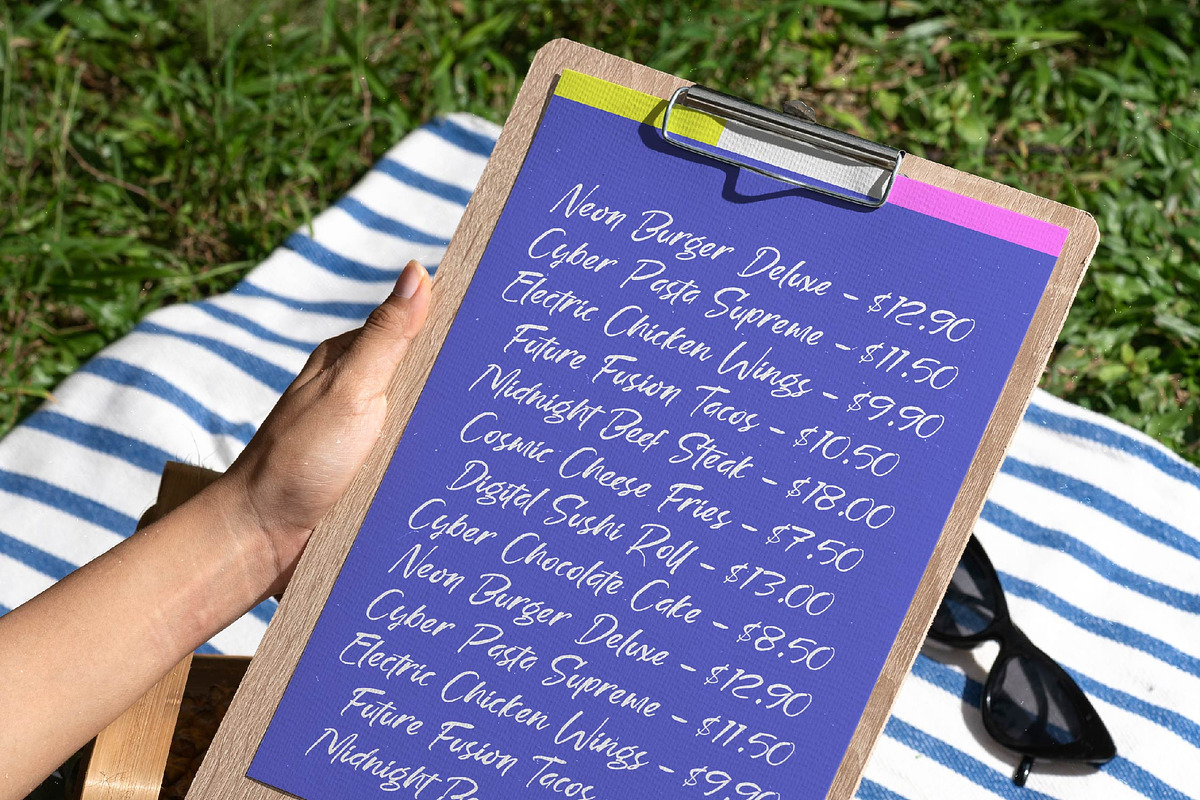 Neon Burger Deluxe - $12.90
Cyber Pasta Supreme - $11.50
Electric Chicken Wings - $9.90
Future Fusion Tacos - $10.50
Midnight Beef Steak - $18.00
Cosmic Cheese Fries - $7.50
Digital Sushi Roll - $13.00
Cyber Chocolate Cake - $8.50
Neon Burger Deluxe - $12.90
Cyber Pasta Supreme - $11.50
Electric Chicken Wings - $9.90
Future Fusion Tacos
Midnight